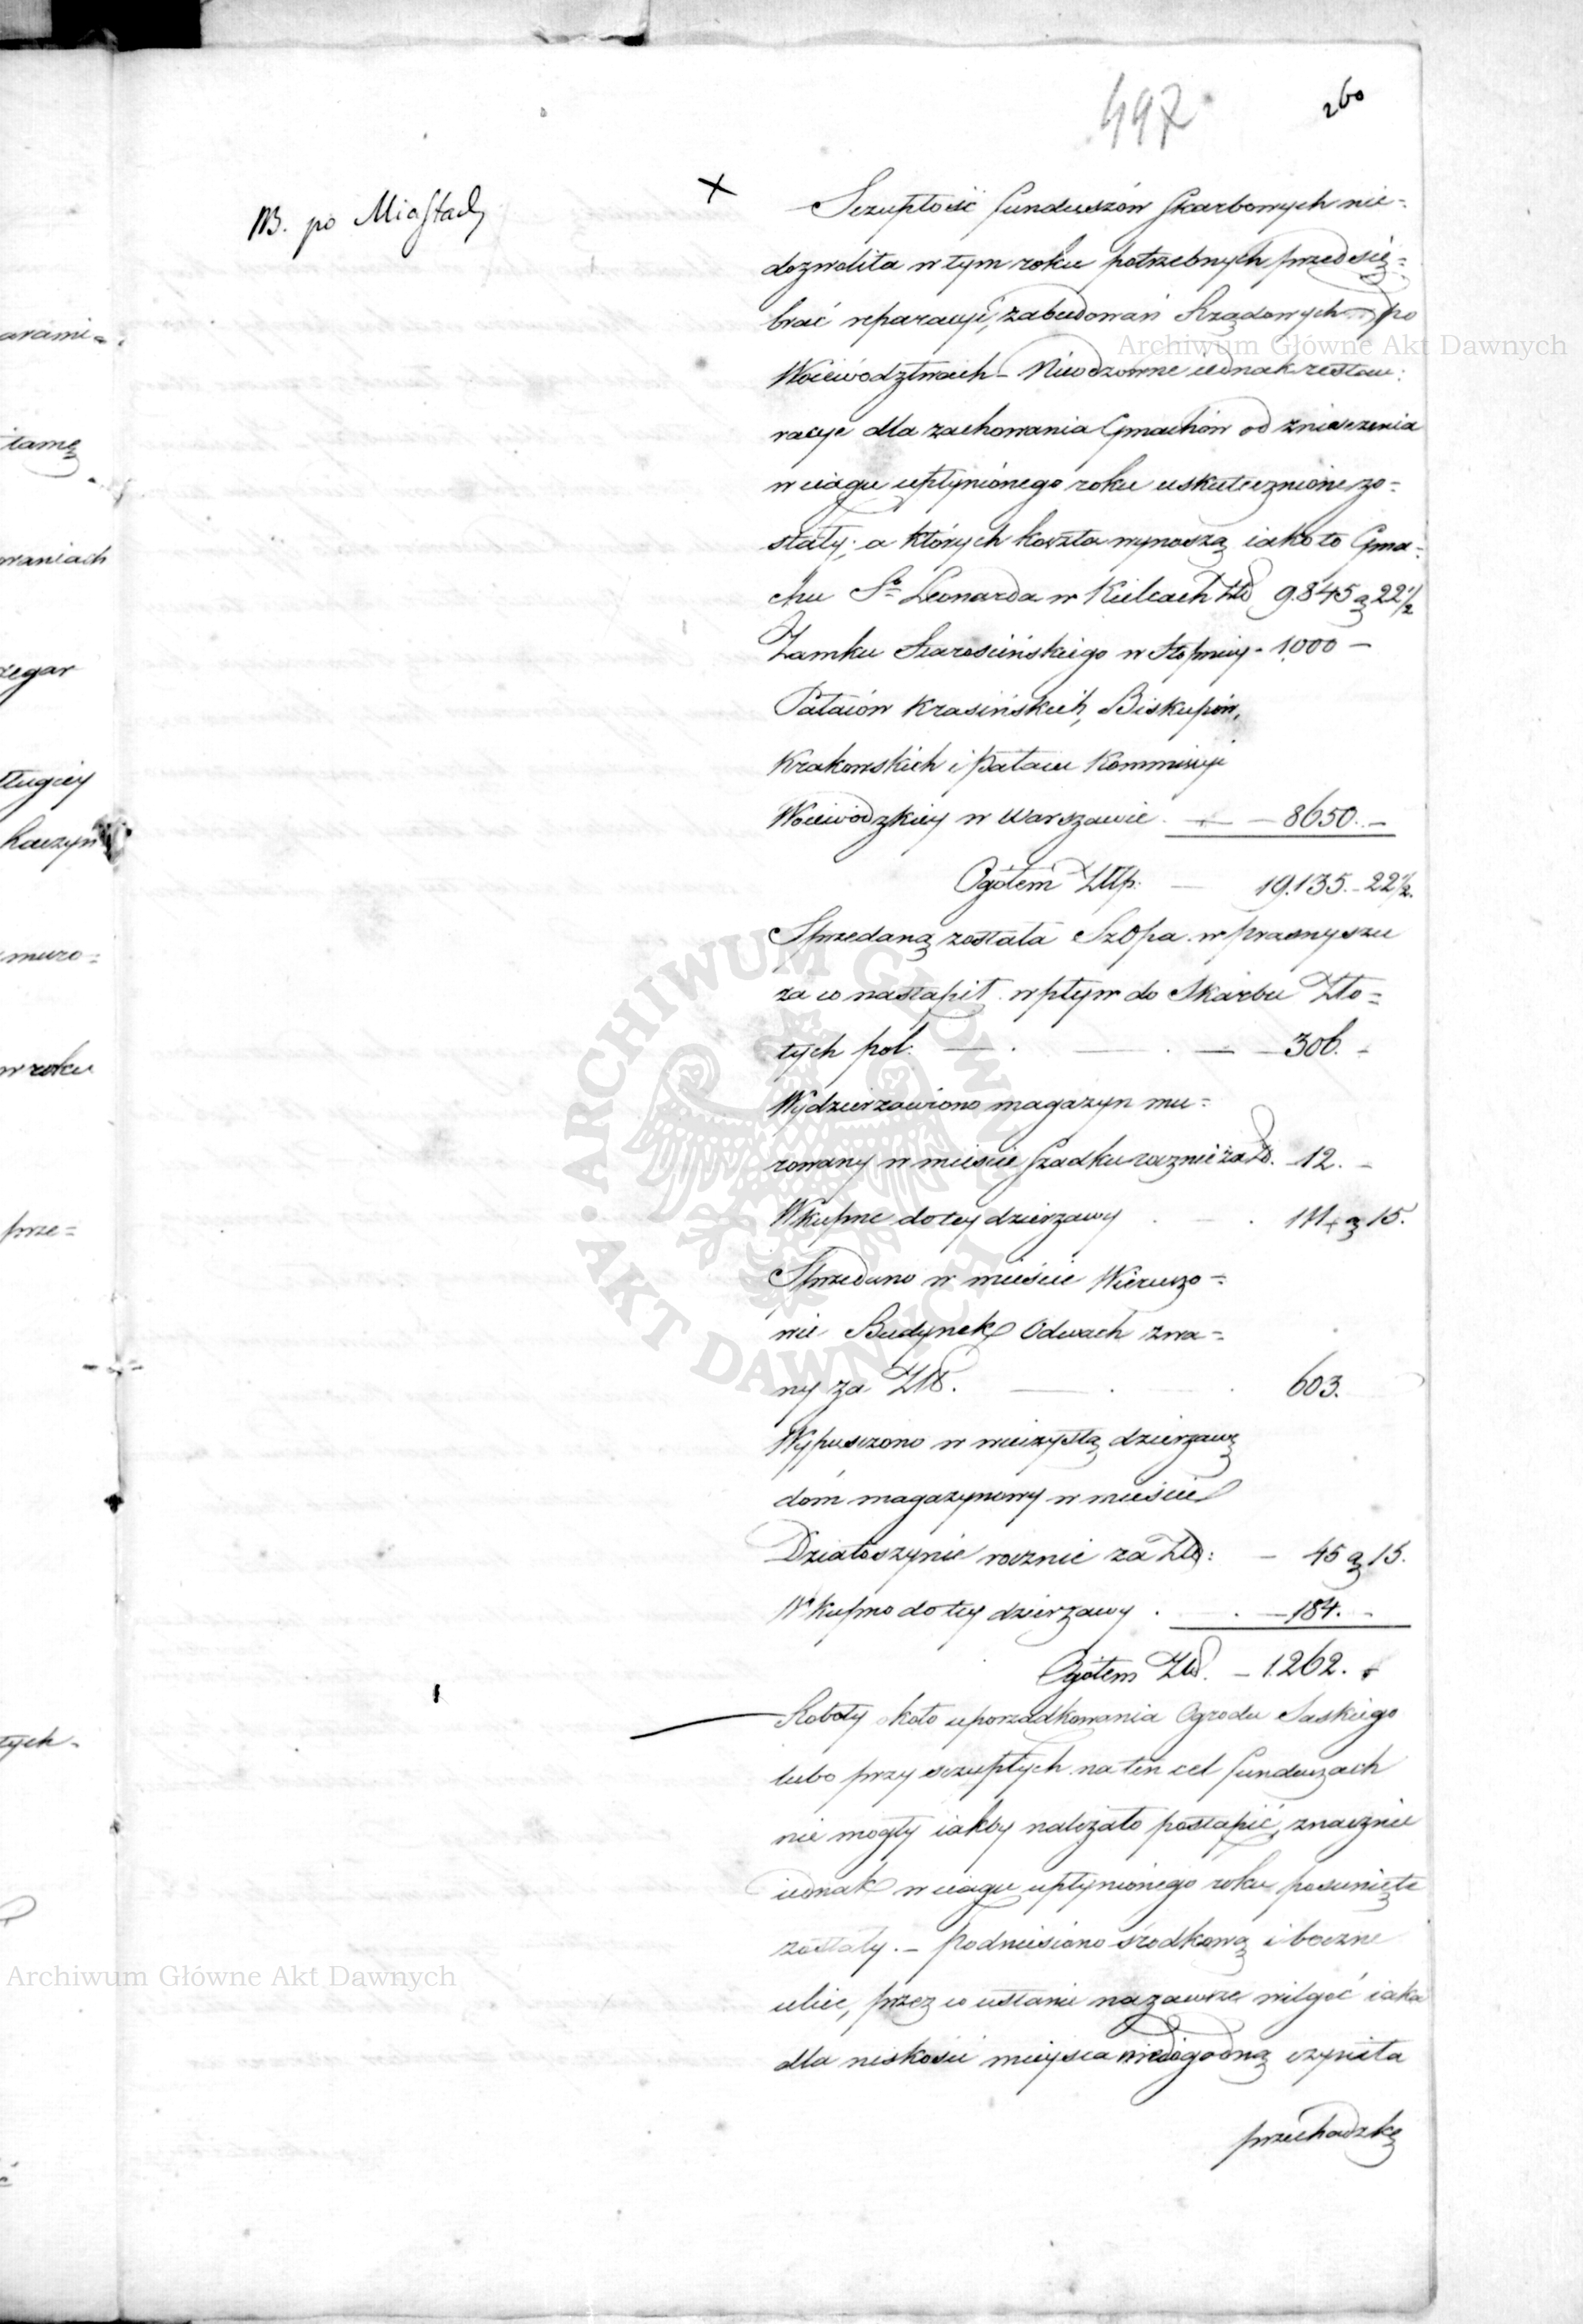 497
260
NB. po Miastach
Sczupłość funduszów skarbowych nie=
dozwoliła w tym roku potrzebnych przedsię=
brać reparacyi, zabudowań Rządowych po
Woiewództwach – Nieodzowne iednak restau:
racye dla zachowania Gmachów od zniszczenia
w ciągu upłynionego roku uskutecznione zo=
stały; a których koszta wynoszą iako to Gma=
chu St. Leonarda w Kielcach Złp 9.845 g 22 1/2
Zamku Starościńskiego w Stopnicy - 1000 –
Pałaców Krasińskich, Biskupów,
Krakowskich i Pałacu Kommissyi
Woiewódzkiey w Warszawie. — — 8650. –
Ogółem Złp. — 19.135. – 22 1/2.
Sprzedaną została Szopa w Prasnyszu
za co nastąpił wpływ do Skarbu Zło=
tych pol. — . — . — 306. –
Wydzierzawiono magazyn mu=
rowany w mieście Szadku rocznie za Zł. 12. –
Wkupne do tey dzierzawy . — . 111 g 15.
Sprzedano w mieście Wieruszo=
wie Budynek Odwach zwa=
ny za Złp. — . 603.
Wypusczono w wieczystą dzierzawę
dóm magazynowy w mieście
Działoszynie rocznie za Złp: – 45 g 15.
Wkupno do tey dzierzawy . — . — 184. –
Ogółem Złp. – 1.262. –
Roboty około uporządkowania Ogrodu Saskiego
lubo przy sczupłych na ten cel funduszach
nie mogły iakby należało postąpić, znacznie
iednak w ciągu upłynionego roku posunięte
zostały. – Podniesiono środkową i boczne
ulice, przez co ustanie nazawsze wilgoć iaka
dla niskości mieysca niedogodną czyniła
przechadzkę
arami=
tamę
waniach
zegar
ługiey
muro=
w roku
prze=
tych
Archiwum Główne Akt Dawnych
Archiwum Główne Akt Dawnych
ARCHIWUM GŁÓWNE • AKT DAWNYCH •